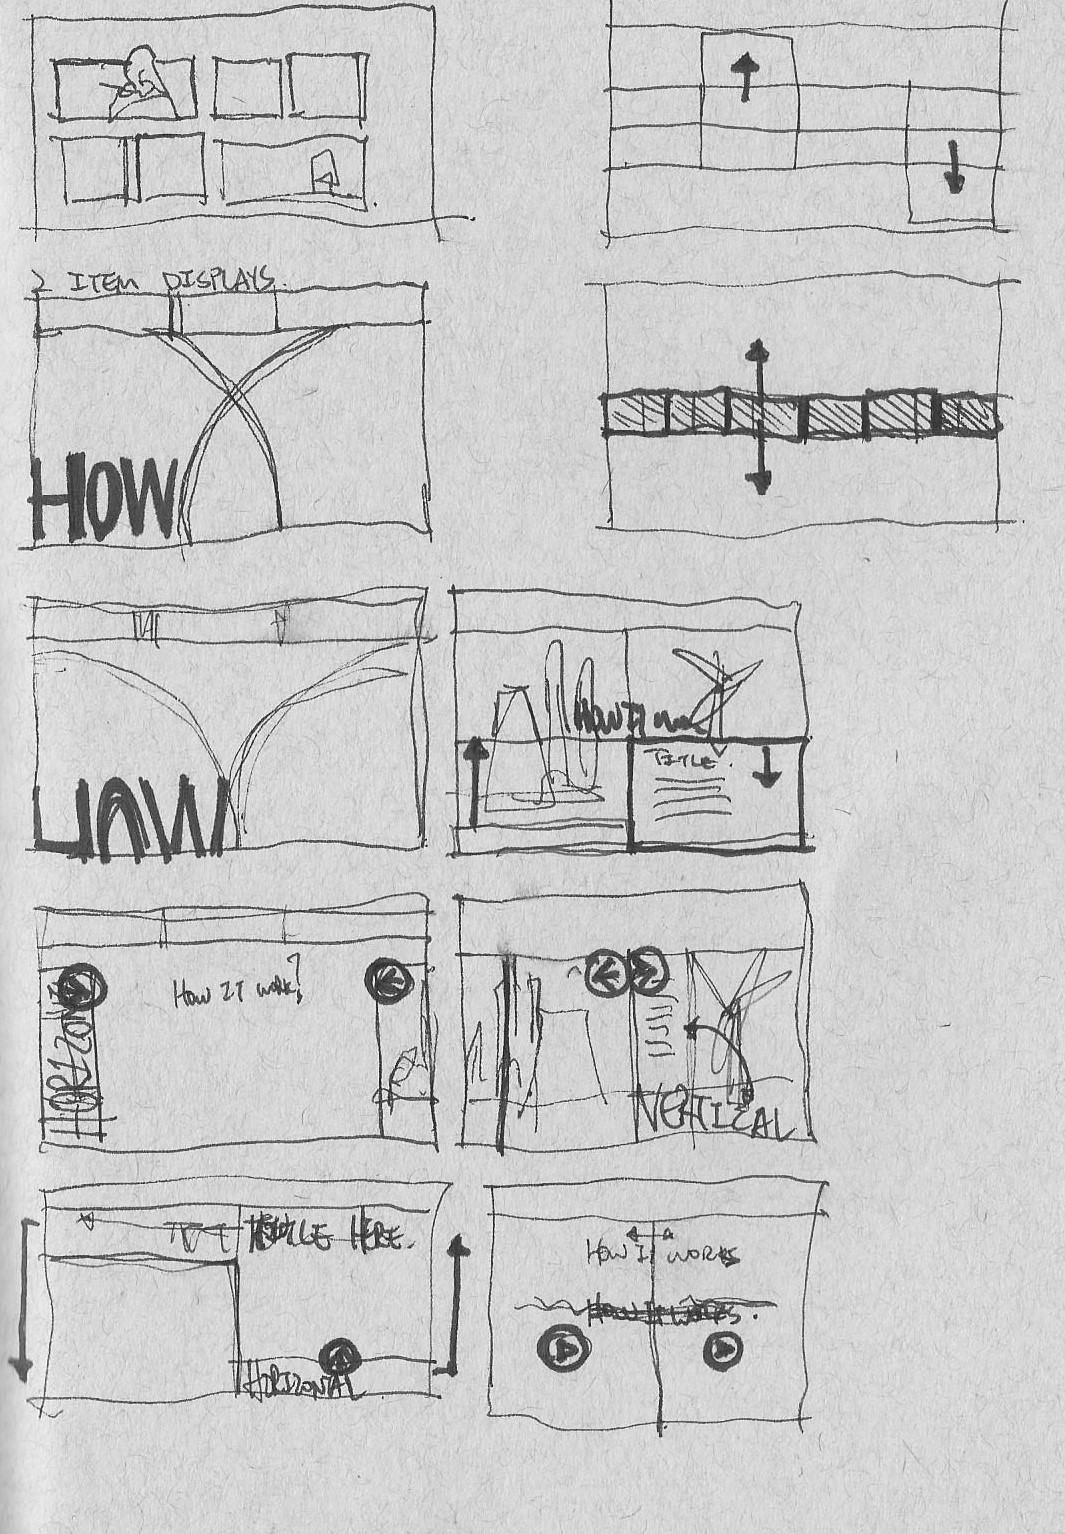 2 ITEM DISPLAYS.
HOW
HOW IT
TITLE.
HOW IT WORK?
HORIZONT
VERTICAL
HERE.
HORIZONTAL
HOW IT WORKS
HOW IT WORKS.